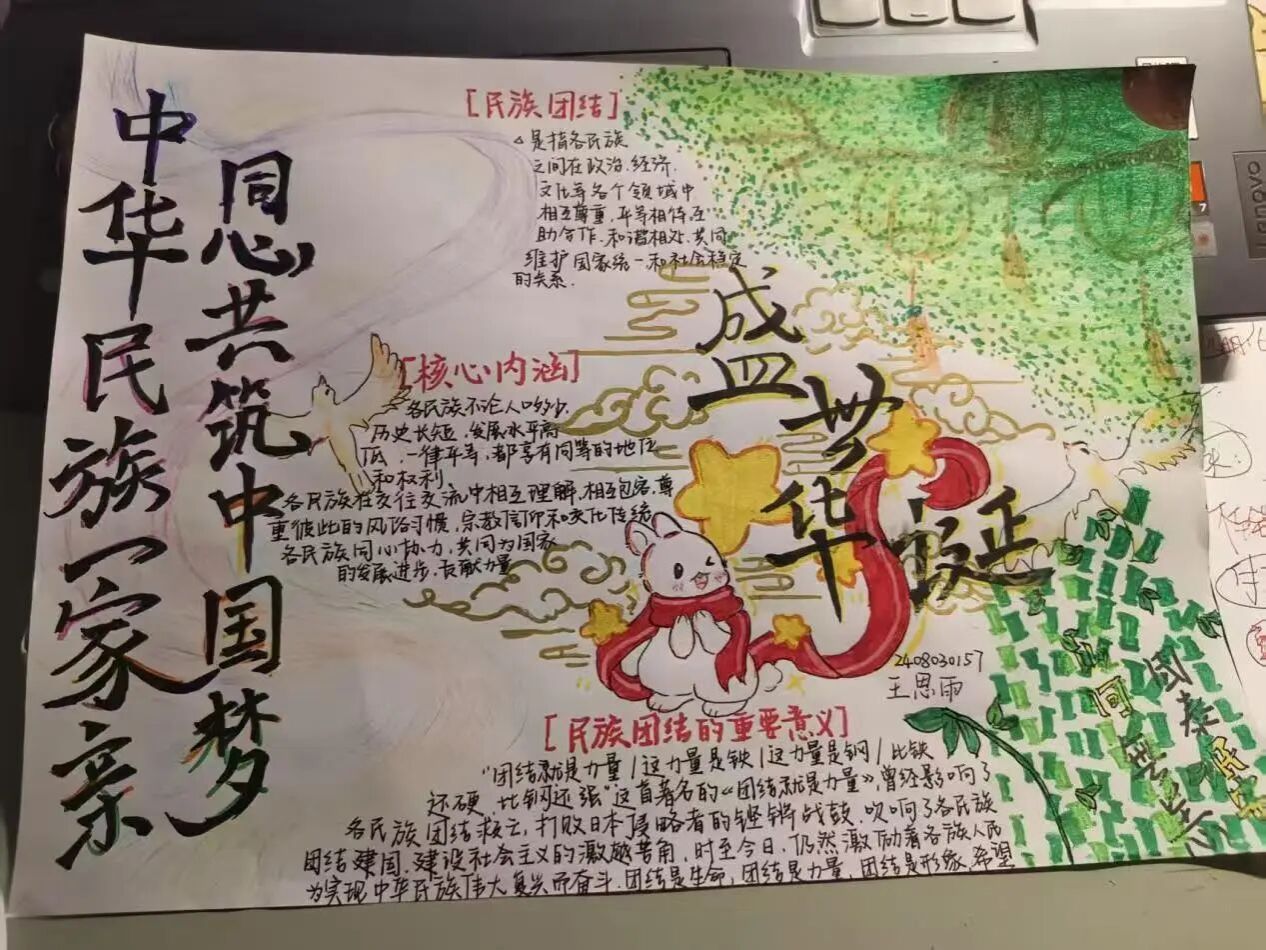 中华民族一家亲
同心共筑中国梦
[民族团结]
是指各民族
之间在政治.经济.
文化等各个领域中
相互尊重,平等相待,互
助合作.和谐相处.共同
维护国家统一和社会稳定
的关系.
[核心内涵]
各民族不论人口多少.
历史长短,发展水平高
低,一律平等,都享有同等的地位
和权利.
各民族在交往交流中相互理解.相互包容.尊
重彼此的风俗习惯,宗教信仰和文化传统
各民族同心协力,共同为国家
的发展进步.贡献力量
盛世华诞
2408030157
王思雨
[民族团结的重要意义]
"团结就是力量/这力量是铁/这力量是钢/比铁
还硬.比钢还强"这首著名的《团结就是力量》,曾经影响了
各民族团结救亡,打败日本侵略者的铿锵战鼓.吹响了各民族
团结建国.建设社会主义的激越号角,时至今日.仍然激励着各族人民
为实现中华民族伟大复兴而奋斗.团结是生命,团结是力量,团结是形象,希望
lenovo
7